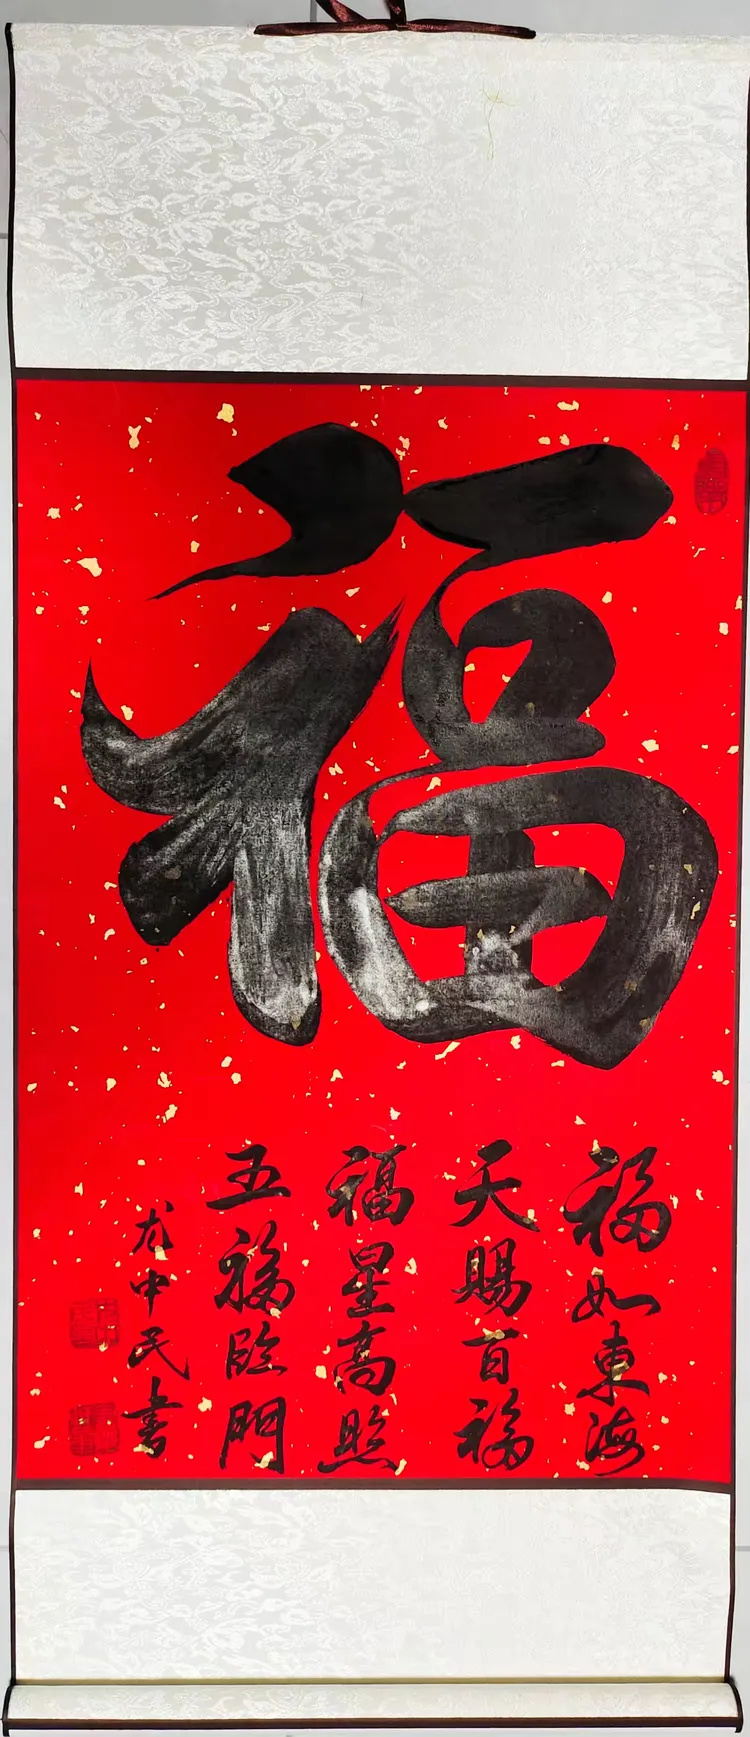 福
福如東海
天賜百福
福星高照
五福臨門
中民書